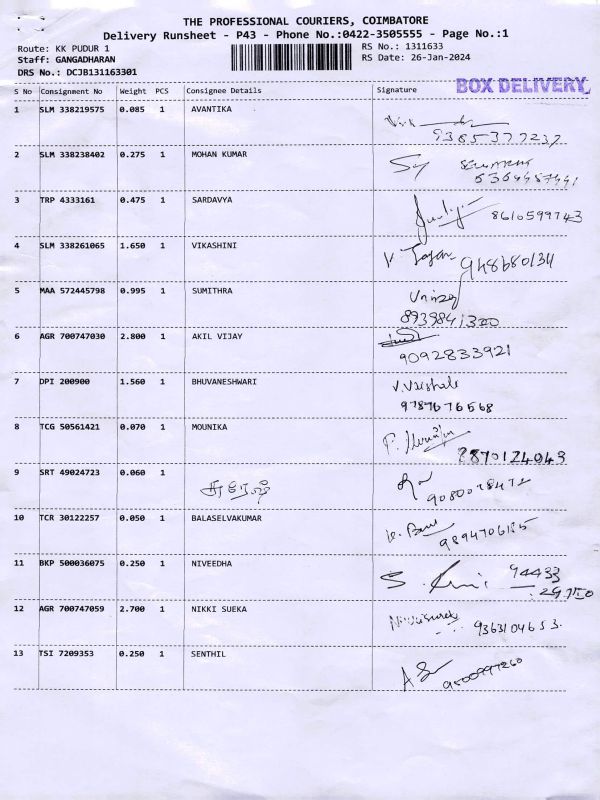 THE PROFESSIONAL COURIERS, COIMBATORE
Delivery Runsheet - P43 - Phone No.:0422-3505555 - Page No.:1
Route: KK PUDUR 1 RS No.: 1311633
Staff: GANGADHARAN RS Date: 26-Jan-2024
DRS No.: DCJB131163301
S No Consignment No Weight PCS Consignee Details Signature BOX DELIVERY
1 SLM 338219575 0.085 1 AVANTIKA
9385377237
2 SLM 338238402 0.275 1 MOHAN KUMAR
3 TRP 4333161 0.475 1 SARDAVYA 8610599743
4 SLM 338261065 1.650 1 VIKASHINI 948680134
5 MAA 572445798 0.995 1 SUMITHRA
8939841320
6 AGR 700747030 2.800 1 AKIL VIJAY
9092833921
7 DPI 200900 1.560 1 BHUVANESHWARI V. Vaishali
9787676568
8 TCG 50561421 0.070 1 MOUNIKA
8870124043
9 SRT 49024723 0.060 1 சுரேஷ்
10 TCR 30122257 0.050 1 BALASELVAKUMAR
9894706185
11 BKP 500036075 0.250 1 NIVEEDHA 94433
12 AGR 700747059 2.700 1 NIKKI SUEKA 9363104653
13 TSI 7209353 0.250 1 SENTHIL
9500997260